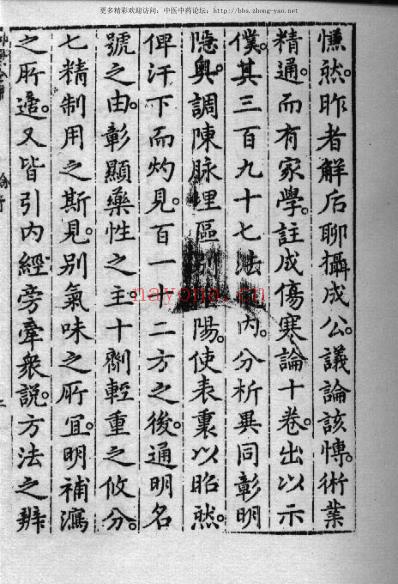 更多精彩欢迎访问：中医中药论坛：http://bbs.zhong-yao.net
憮然。昨者解后聊攝成公。議論該博。術業
精通。而有家學。註成傷寒論十卷。出以示
僕。其三百九十七法內。分析異同。彰明
隱奧。調陳脉理。區別陽。使表裏以昭然。
俾汗下而灼見。百一十二方之後。通明名
號之由。彰顯藥性之主。十劑輕重之攸分。
七精制用之斯見。別氣味之所宜。明補瀉
之所適。又皆引內經。旁牽衆說。方法之辨